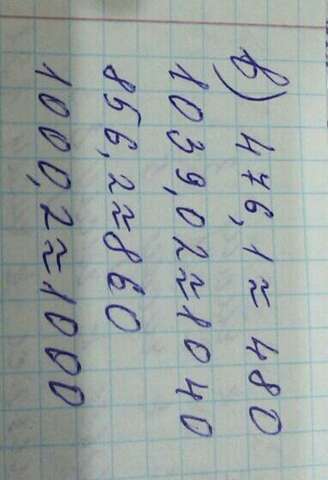 в) 476,1≈480
1039,02≈1040
856,2≈860
1000,2≈1000